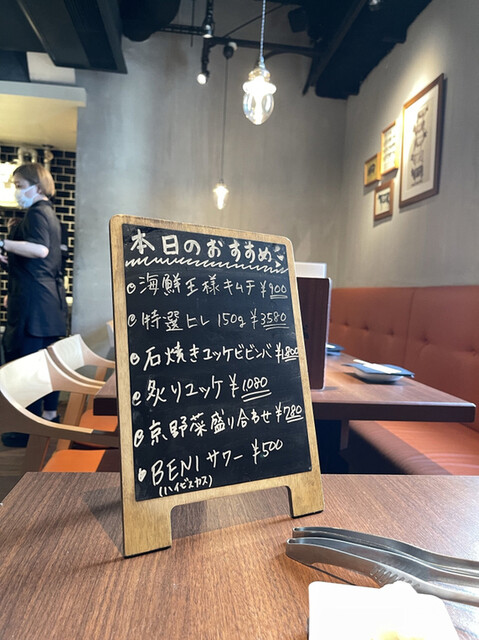 本日のおすすめ
海鮮王様キムチ ¥900
特選ヒレ 150g ¥3580
石焼きユッケビビンバ ¥1,800
炙りユッケ ¥1,080
京野菜盛り合わせ ¥780
BENI サワー ¥500
(ハイビスカス)